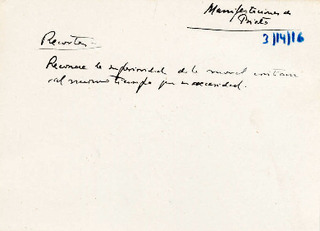 Manifestaciones de
Prieto
3/14/16
Recortes:
Reconoce la superioridad de la moral cristiana
al mismo tiempo que su necesidad.